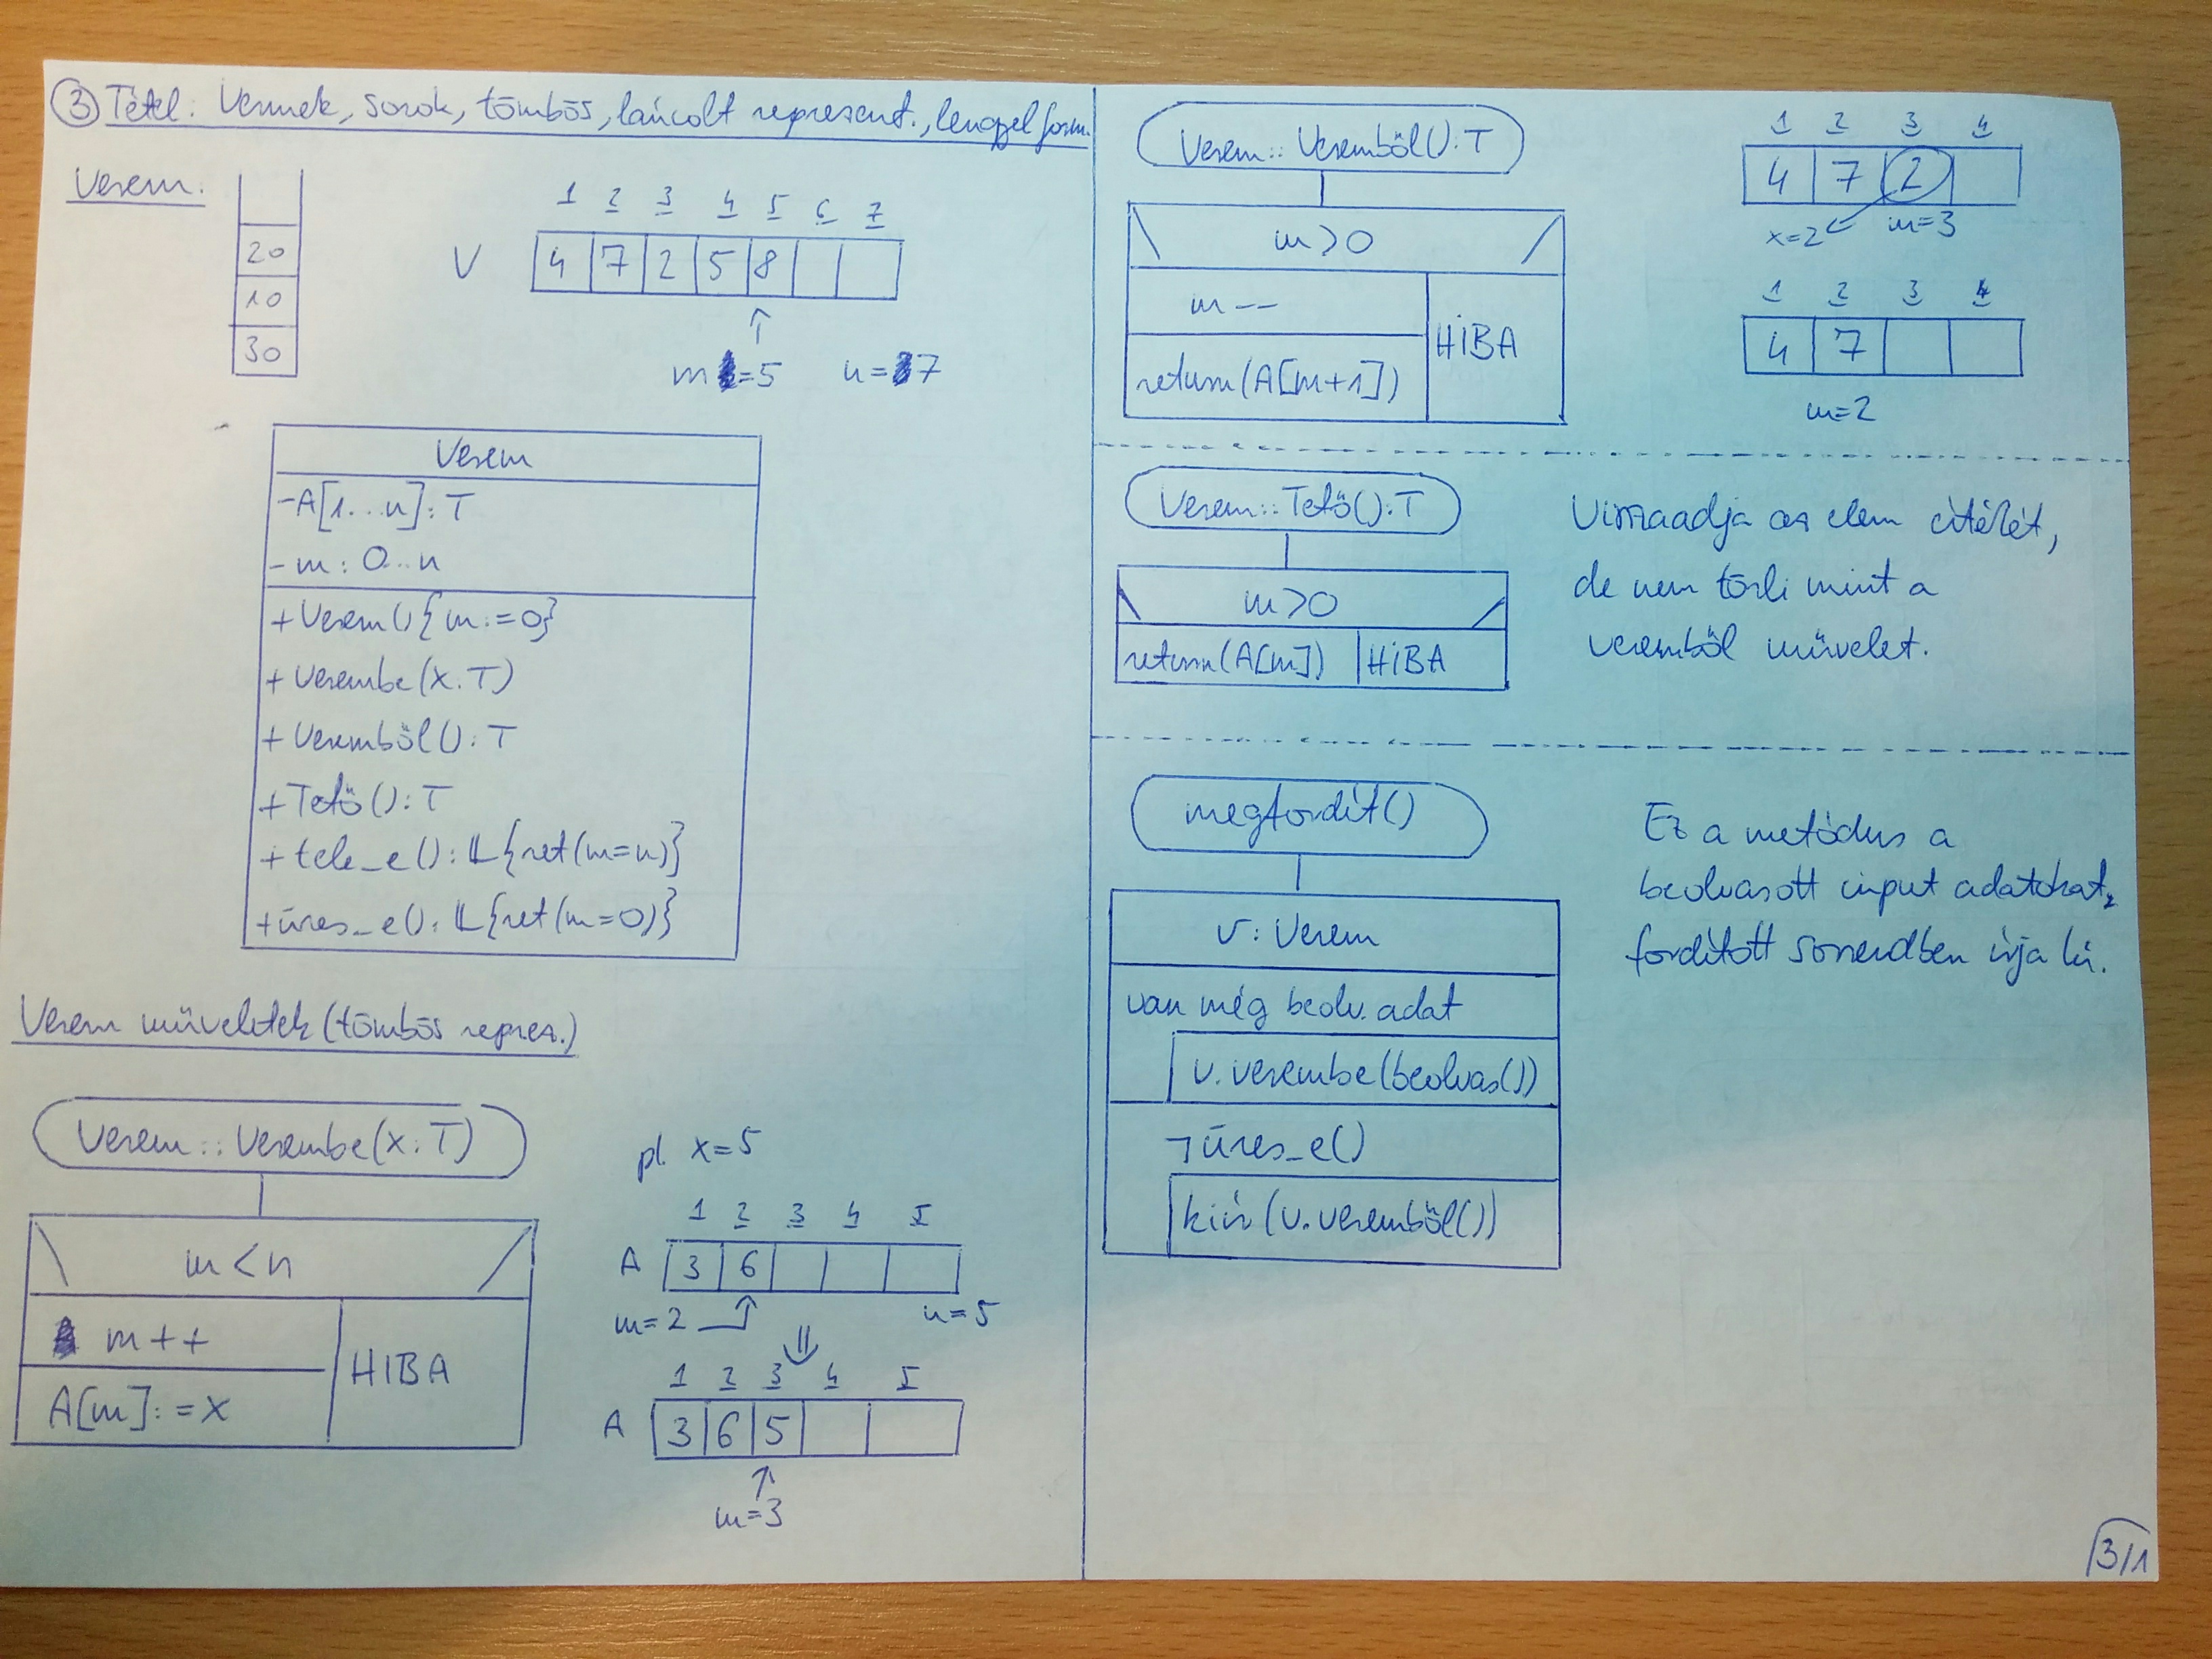 ③ Tétel: Vermek, sorok, tömbös, láncolt represent., lengyel form.
Verem:
20
10
30
1 2 3 4 5 6 7
V 4 7 2 5 8
m=5 n=7
Verem
-A[1...n]: T
-m: 0..n
+Verem(){m:=0}
+Verembe(x:T)
+Veremből(): T
+Tető(): T
+tele_e(): 𝕃{ret(m=n)}
+üres_e(): 𝕃{ret(m=0)}
Verem műveletek (tömbös repres.)
Verem::Verembe(x:T)
m<n
m++
A[m]:=x
HIBA
pl. x=5
1 2 3 4 5
A 3 6
m=2 n=5
1 2 3 4 5
A 3 6 5
m=3
Verem::Veremből(): T
m>0
m--
return(A[m+1])
HIBA
1 2 3 4
4 7 2
x=2 m=3
1 2 3 4
4 7
m=2
Verem::Tető():T
m>0
return(A[m])
HIBA
Visszaadja az elem értékét,
de nem törli mint a
veremből művelet.
megfordít()
v: Verem
van még beolv. adat
v.verembe(beolvas())
¬üres_e()
kiír(v.veremből())
Ez a metódus a
beolvasott input adatokat,
fordított sorrendben írja ki.
3/1